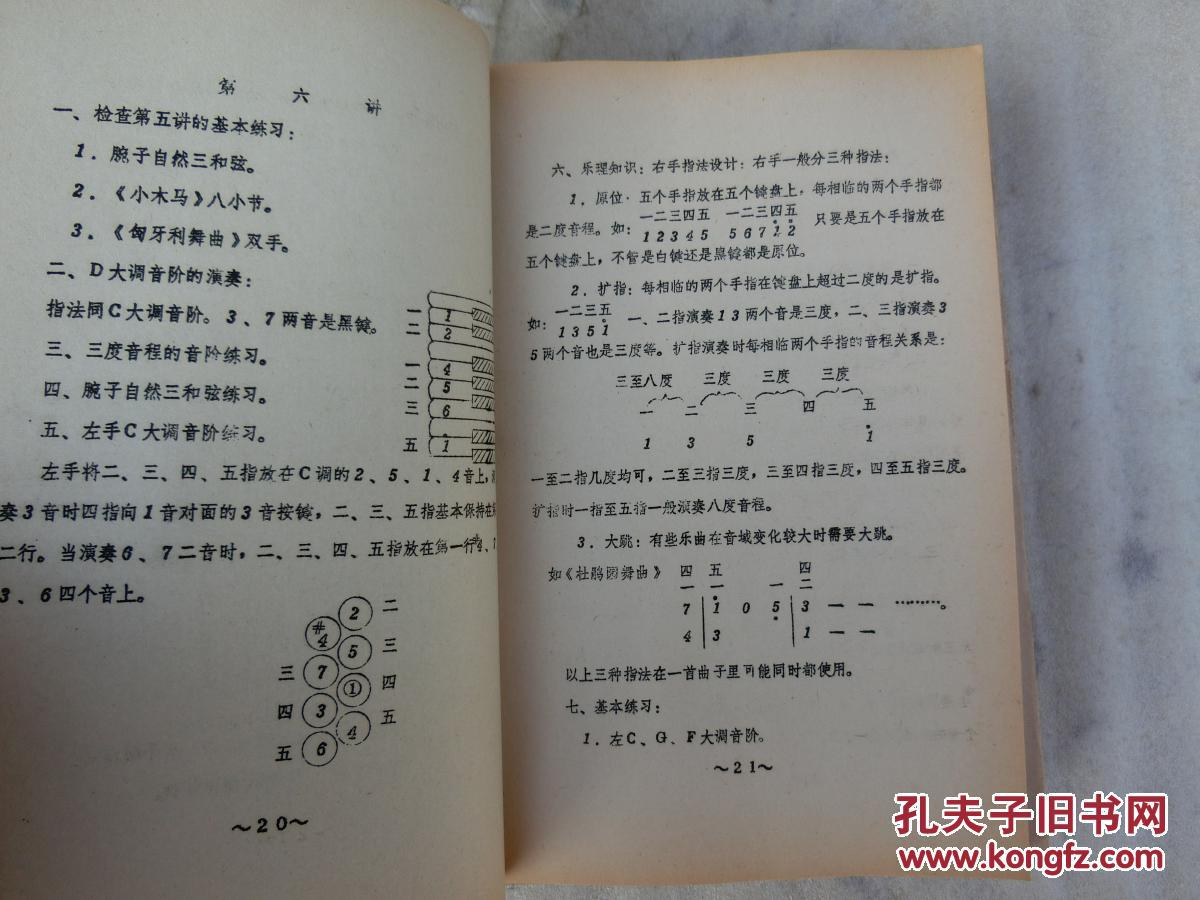 第 六 讲
一、检查第五讲的基本练习：
1．腕子自然三和弦。
2．《小木马》八小节。
3．《匈牙利舞曲》双手。
二、D大调音阶的演奏：
指法同C大调音阶。3、7两音是黑键。
三、三度音程的音阶练习。
四、腕子自然三和弦练习。
五、左手C大调音阶练习。
一 1
二 2
一 4
二 5
三 6
五 1̇
左手将二、三、四、五指放在C调的2、5、1、4音上，
奏3音时四指向1音对面的3音按键，二、三、五指基本保持在
二行。当演奏6、7二音时，二、三、四、五指放在第一行
3、6四个音上。
2 二
#4
5 三
三 7
① 四
四 3
4 五
五 6
～20～
六、乐理知识：右手指法设计：右手一般分三种指法：
1．原位：五个手指放在五个键盘上，每相临的两个手指都
一二三四五 一二三四五
是二度音程。如：12345 5671̇2̇ 只要是五个手指放在
五个键盘上，不管是白键还是黑键都是原位。
2．扩指：每相临的两个手指在键盘上超过二度的是扩指。
一二三五
如：1351̇ 一、二指演奏13两个音是三度，二、三指演奏3
5两个音也是三度等。扩指演奏时每相临两个手指的音程关系是：
三至八度 三度 三度 三度
一 二 三 四 五
1 3 5 1̇
一至二指几度均可，二至三指三度，三至四指三度，四至五指三度。
扩指时一指至五指一般演奏八度音程。
3．大跳：有些乐曲在音域变化较大时需要大跳。
如《杜鹃园舞曲》 四 五 四
一 一 一 二
7 | 1̇ 0 5̣ | 3 — — ………。
4 | 3 | 1 — —
以上三种指法在一首曲子里可能同时都使用。
七、基本练习：
1．左C、G、F大调音阶。
～21～
孔夫子旧书网
www.kongfz.com